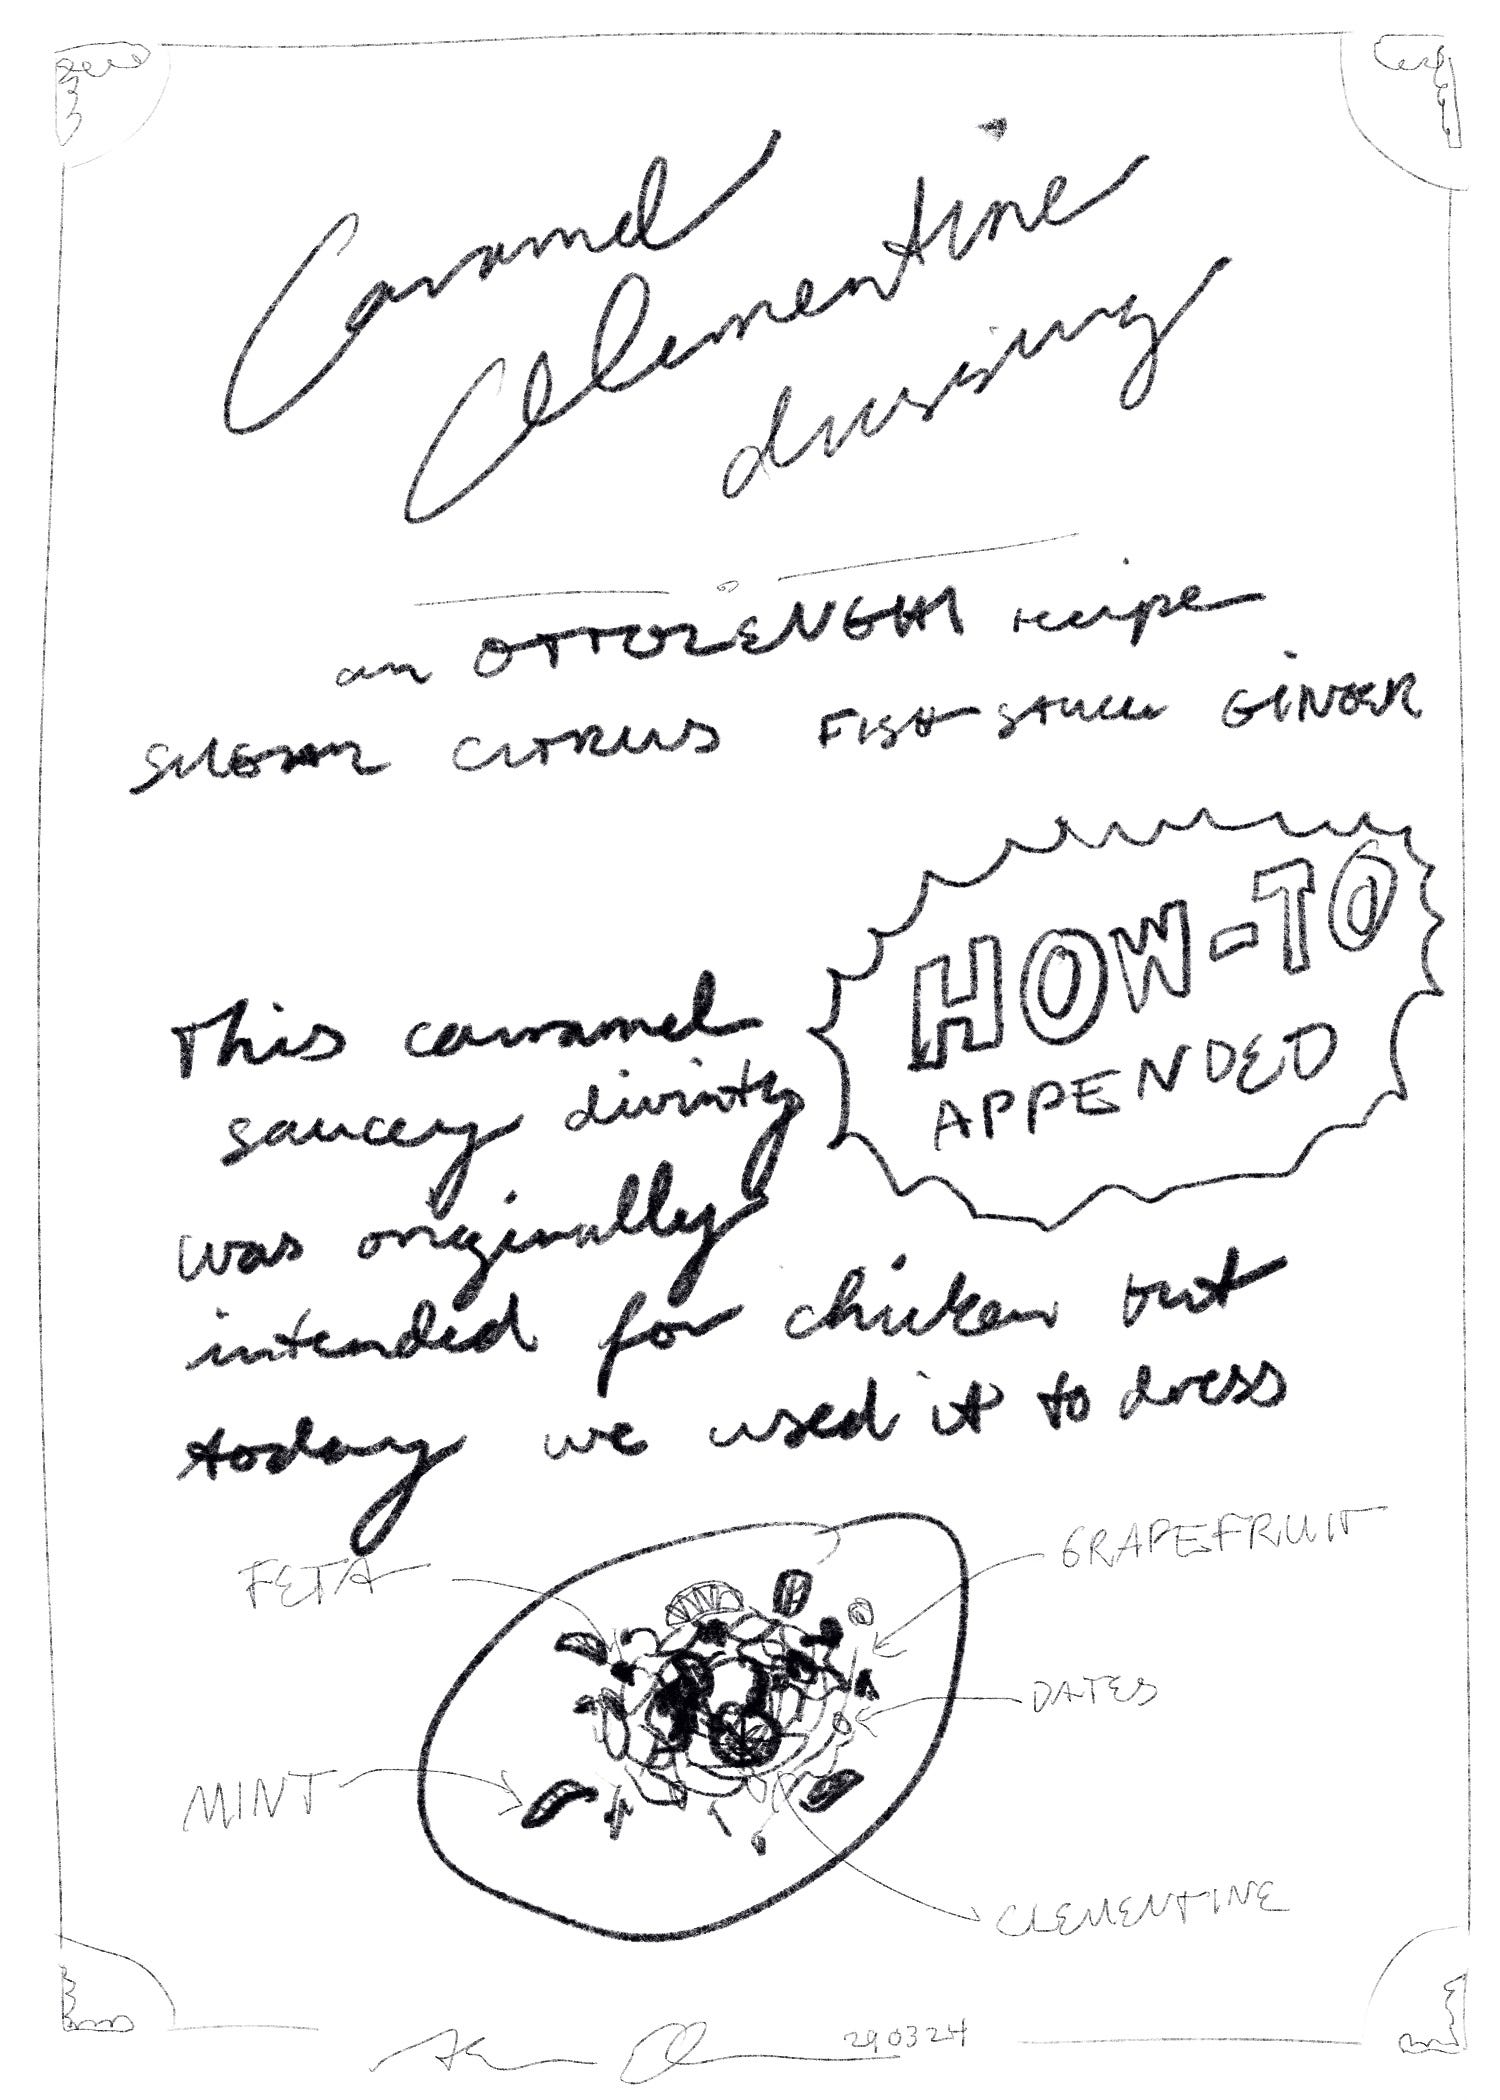 Caramel
Clementine
dressing
an OTTOLENGHI recipe
SUGAR CITRUS FISH SAUCE GINGER
HOW-TO
APPENDED
This caramel
saucey divinity
was originally
intended for chicken but
today we used it to dress
FETA
GRAPEFRUIT
DATES
MINT
CLEMENTINE
290324